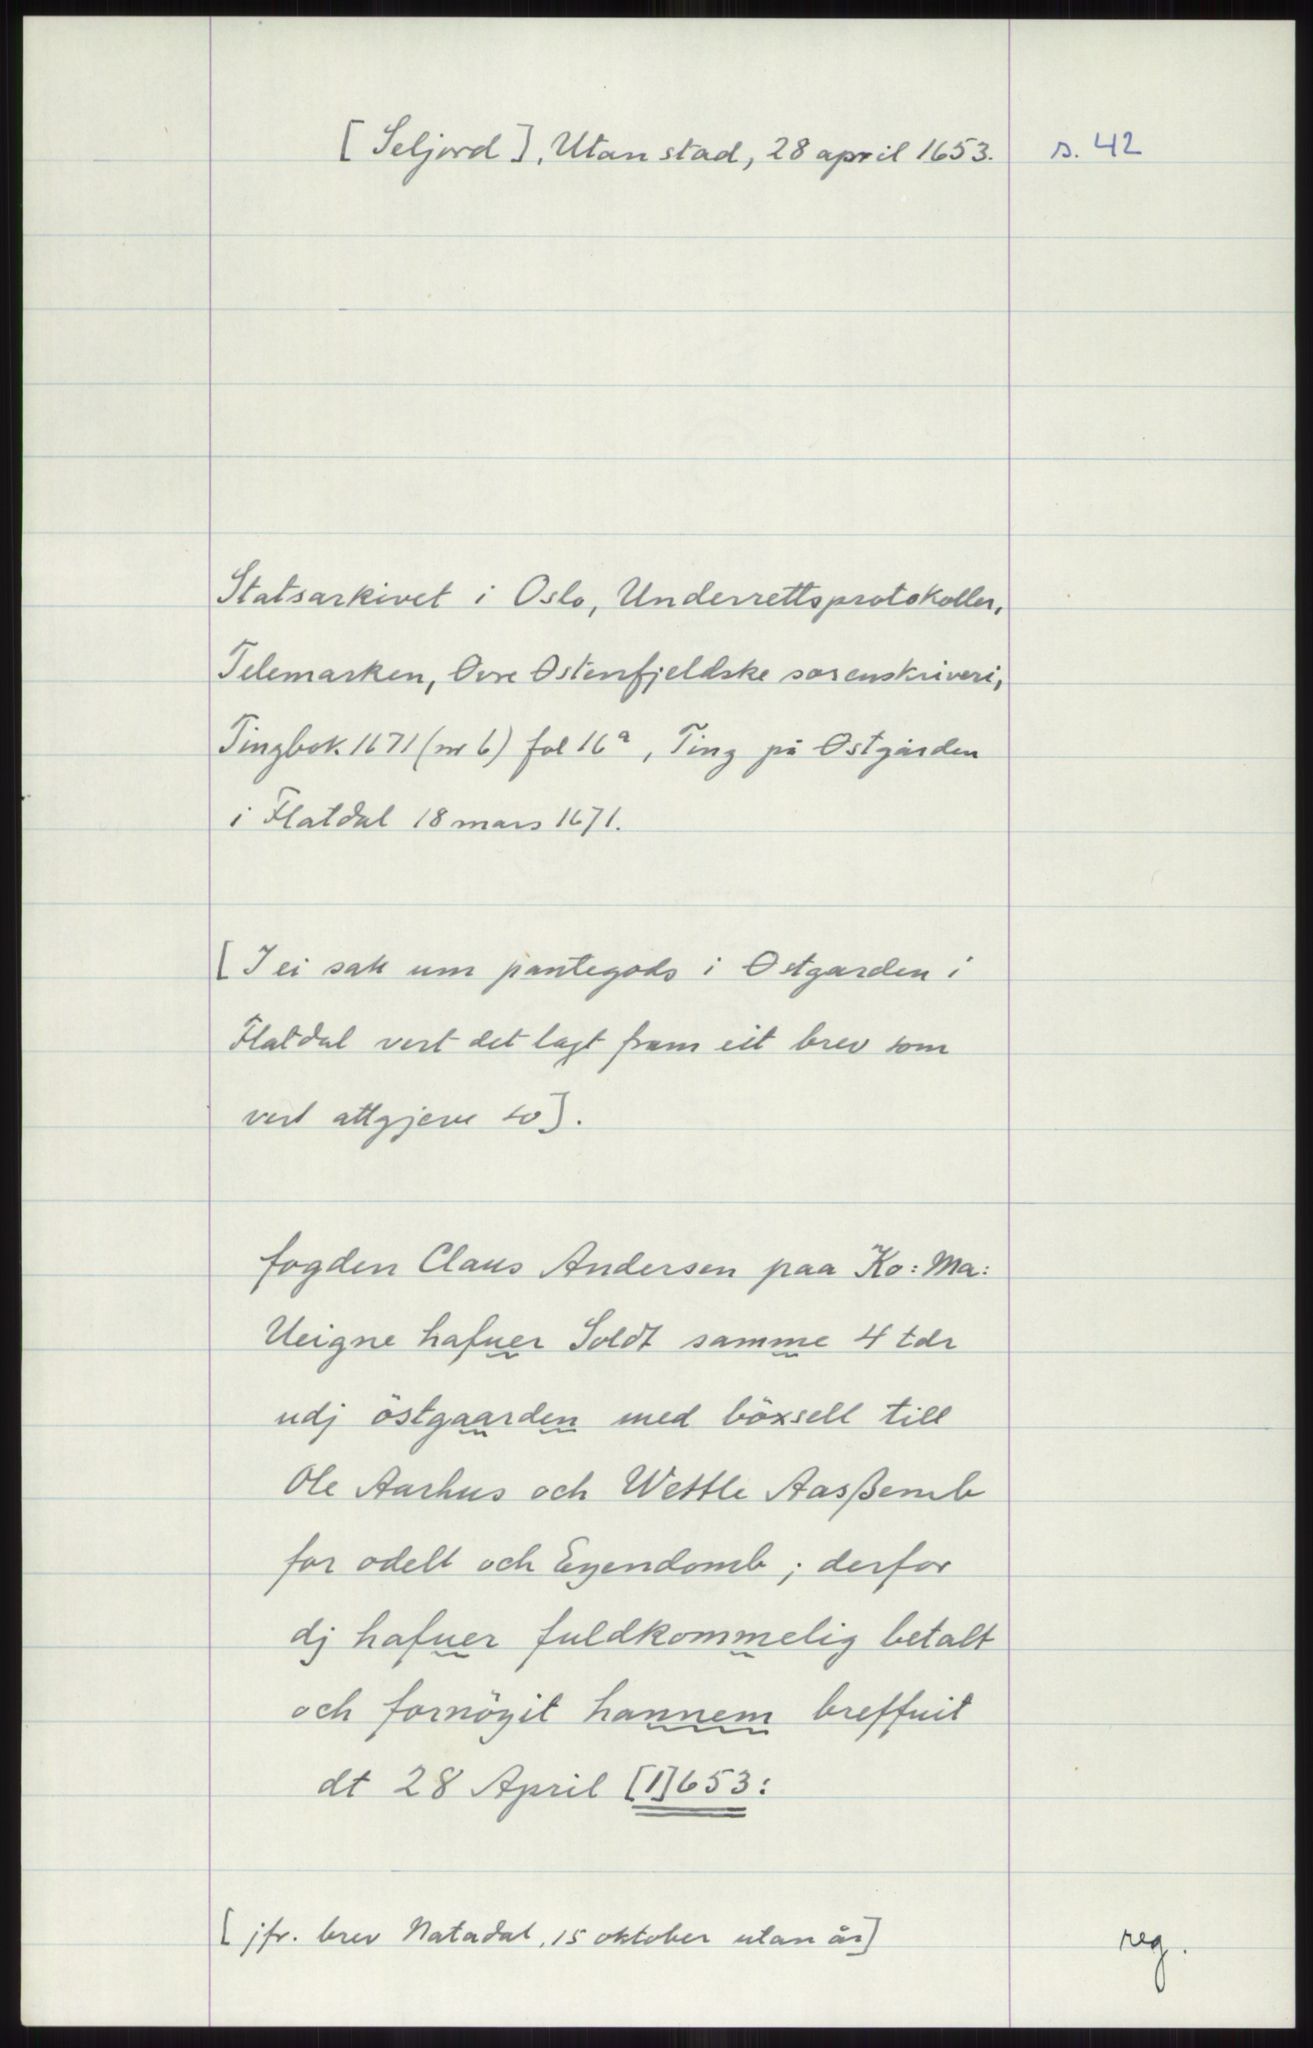 [Seljord], Utan stad, 28 april 1653. s. 42
Statsarkivet i Oslo, Underrettsprotokoller,
Telemarken, Øvre Østenfjeldske sorenskriveri,
Tingbok 1671 (nr 6) fol 16ᵃ, Ting på Østgården
i Flatdal 18 mars 1671.
[I ei sak um pantegods i Østgarden i
Flatdal vert det lagt fram eit brev som
vert attgjeve so].
fogden Claus Andersen paa Ko: Ma:
Ueigne hafuer Soldt samme 4 tdr
udj östgaarden med böxsell till
Ole Aarhus och Wettle Aasßemb
for odell och Eyendomb ; derfor
dj hafuer fuldkommelig betalt
och fornöyit hannem breffuit
dt 28 April [1]653:
[jfr. brev Natadal, 15 oktober utan år]
reg.